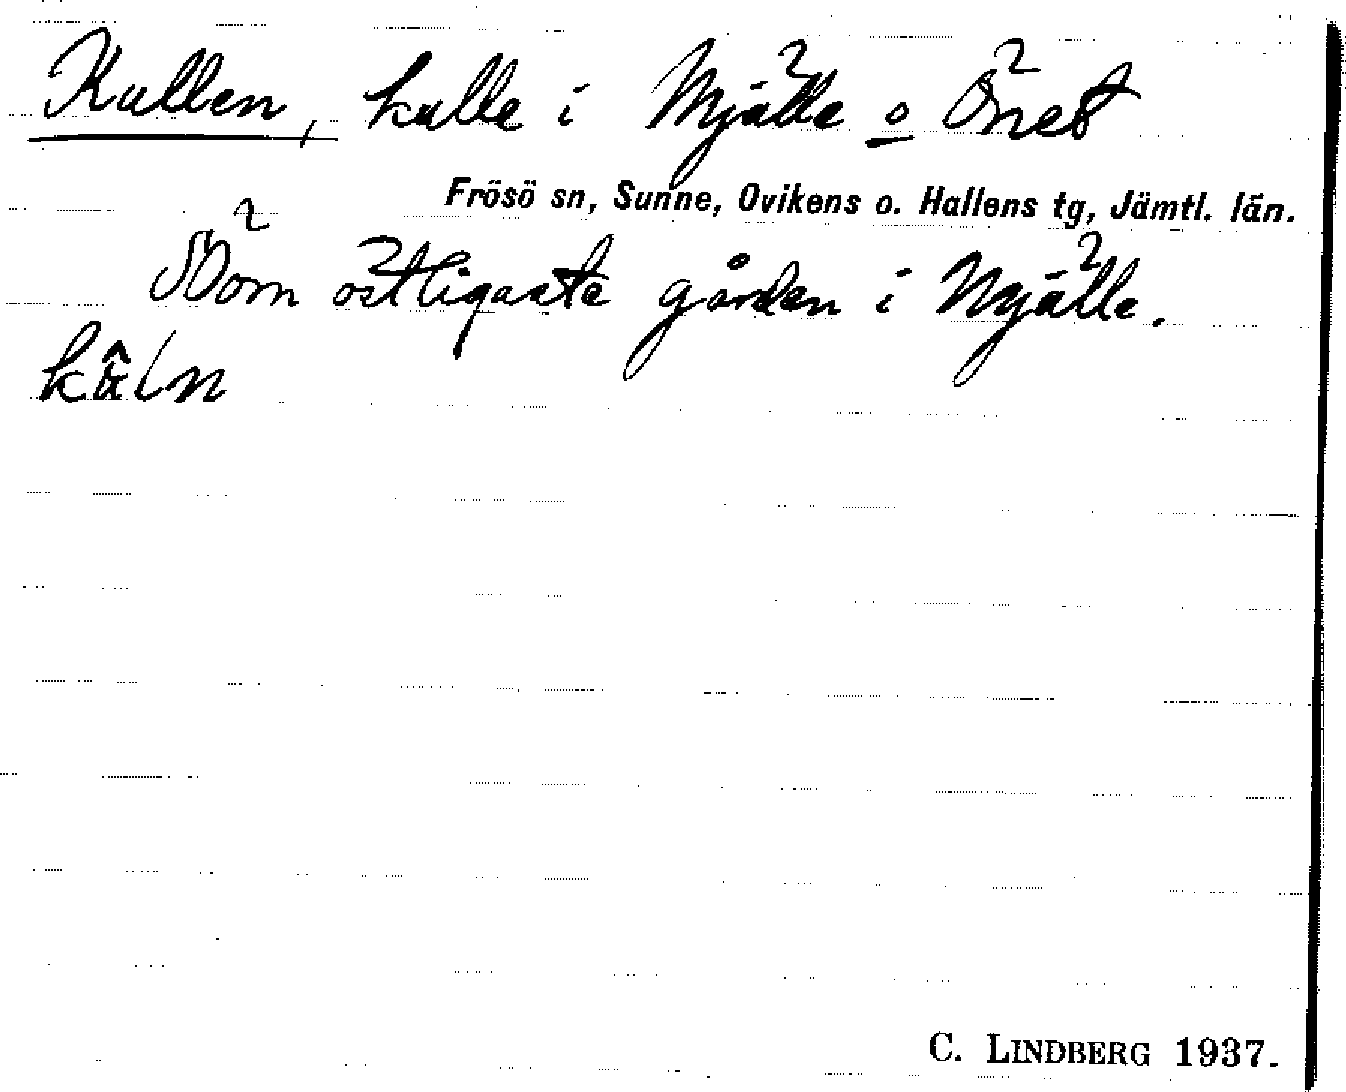 Kullen, kulle i Mjälle o Önet
Frösö sn, Sunne, Ovikens o. Hallens tg, Jämtl. län.
NOom östligaste gården i Mjälle.
kâln
C. LINDBERG 1937.